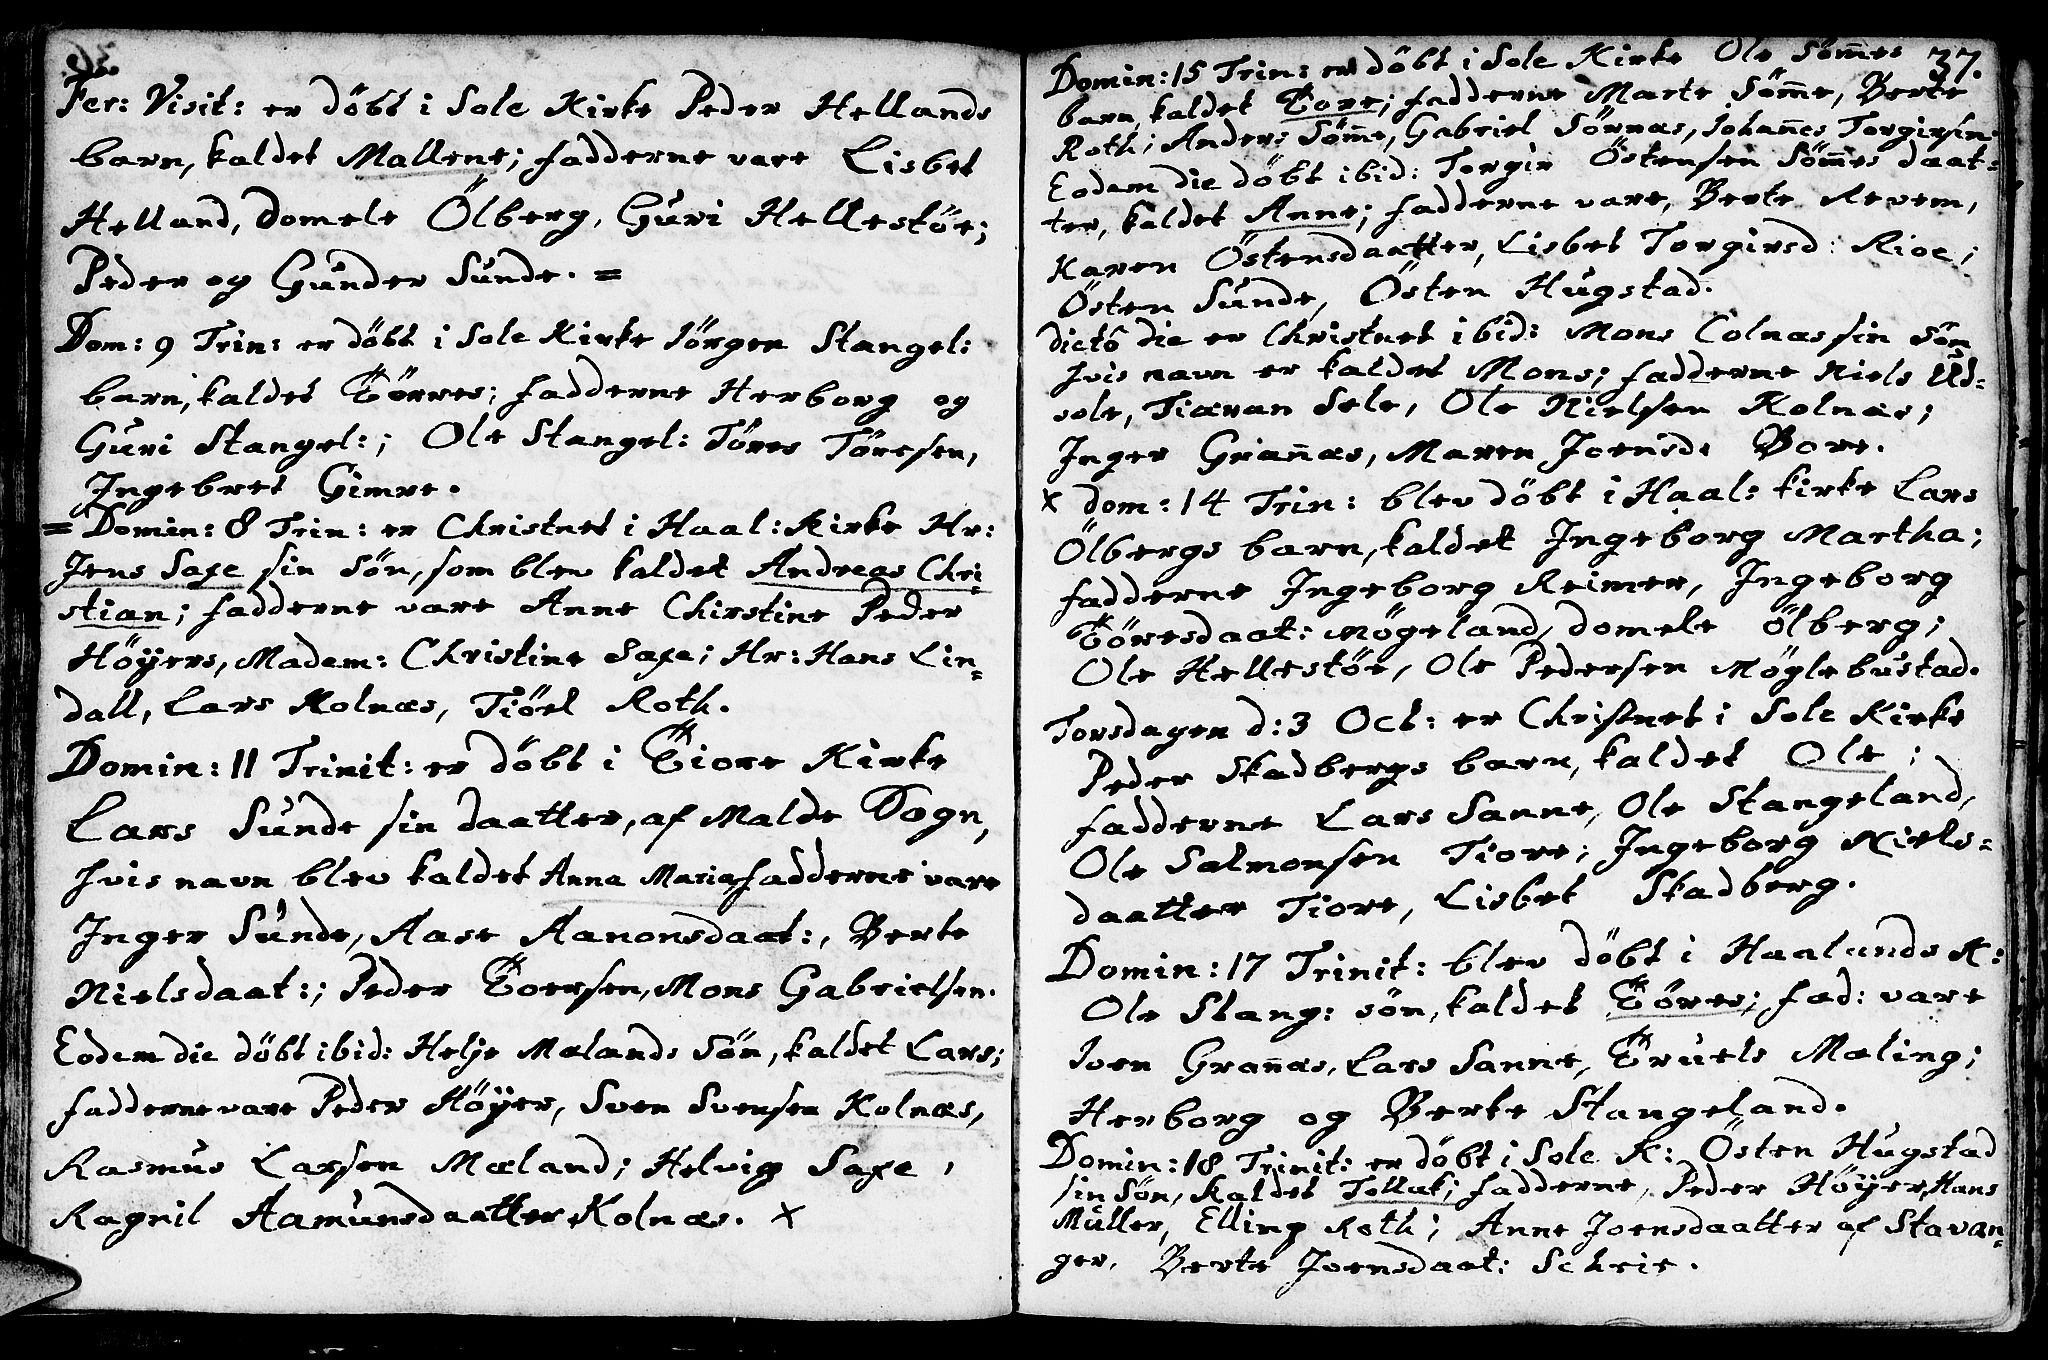 36.
Fer: Visit: er döbt i Sole Kirke Peder Hellands
barn, kaldet Mallene; fadderne vare Lisbet
Helland, Domele Ölberg, Guri Hellestöe;
Peder og Gunder Sunde. =
Dom: 9 Trin: er döbt i Sole Kirke Jörgen Stangel:
barn, kaldet Törres; fadderne Herborg og
Guri Stangel:; Ole Stangel: Töres Töresen,
Ingebret Gimre.
= Domin: 8 Trin: er Christnet i Haal: Kirke Hr:
Jens Saxe sin Sön, som blev kaldet Andreas Chri
stian; fadderne vare Anne Chirstine Peder
Höyers, Madem: Christine Saxe; Hr: Hans Lin-
dall, Lars Kolnæs, Tiöel Roth.
Domin: 11 Trinit: er döbt i Tiore Kirke
Lars Sunde sin daatter, af Malde Sogn,
hvis navn blev kaldet Anna Maria fadderne vare
Inger Sunde, Aase Aanonsdaat:, Berte
Nielsdaat:; Peder Toersen, Mons Gabrielsen.
Eodem die döbt ibid: Helje Mælands Sön, kaldet Lars;
fadderne vare Peder Höyer, Sven Svensen Kolnæs,
Rasmus Larsen Mæland; Helvig Saxe,
Ragnil Aamunsdaatter Kolnæs. x
37.
Domin: 15 Trin: er döbt i Sole Kirke Ole Söm̅es
barn, kaldet Tore; fadderne Marte Söm̅e, Berte
Roth; Anders Söm̅e, Gabriel Sörnæs, Johan̅es Torgirsin:
Eodem die döbt ibid: Torgir Östensen Söm̅es daat-
ter, kaldet Anne; fadderne vare, Berte Revem,
Karen Östensdaatter, Lisbet Torgirsd: Rioe;
Östen Sunde, Östen Hugstad.
dictô die er Christnet ibid: Mons Colnæs sin Sön
hvis navn er kaldet Mons; fadderne Niels Ud-
sole, Tiæran Sele, Ole Nielsen Kolnæs;
Inger Gran̅æs, Maren Joensd: Bore.
x dom: 14 Trin: blev döbt i Haal: kirke Lars
Ölbergs barn, kaldet Ingeborg Martha;
fadderne Ingeborg Reimer, Ingeborg
Töresdaat: Mögeland, domele Ölberg;
Ole Hellestöe, Ole Pedersen Möglebustad.
Torsdagen d: 3 Oct: er Christnet i Sole Kirke
Peder Skadbergs barn, kaldet Ole;
fadderne Lars Sanne, Ole Stangeland,
Ole Salmonsen Tiore; Ingeborg Niels-
daatter Tiore, Lisbet Skadberg.
Domin: 17 Trinit: blev döbt i Haalands K:
Ole Stang: sön, kaldet Töres; fad: vare
Joen Gran̅æs, Lars Sanne, Truels Mæling;
Herborg og Berte Stangeland.
Domin: 18 Trinit: er döbt i Sole K: Östen Hugstad
sin Sön, kaldet Tollak; fadderne, Peder Höyer, Hans
Müller, Elling Roth; Anne Joensdaatter af Stavan-
ger, Berte Joensdaat: Scheie.